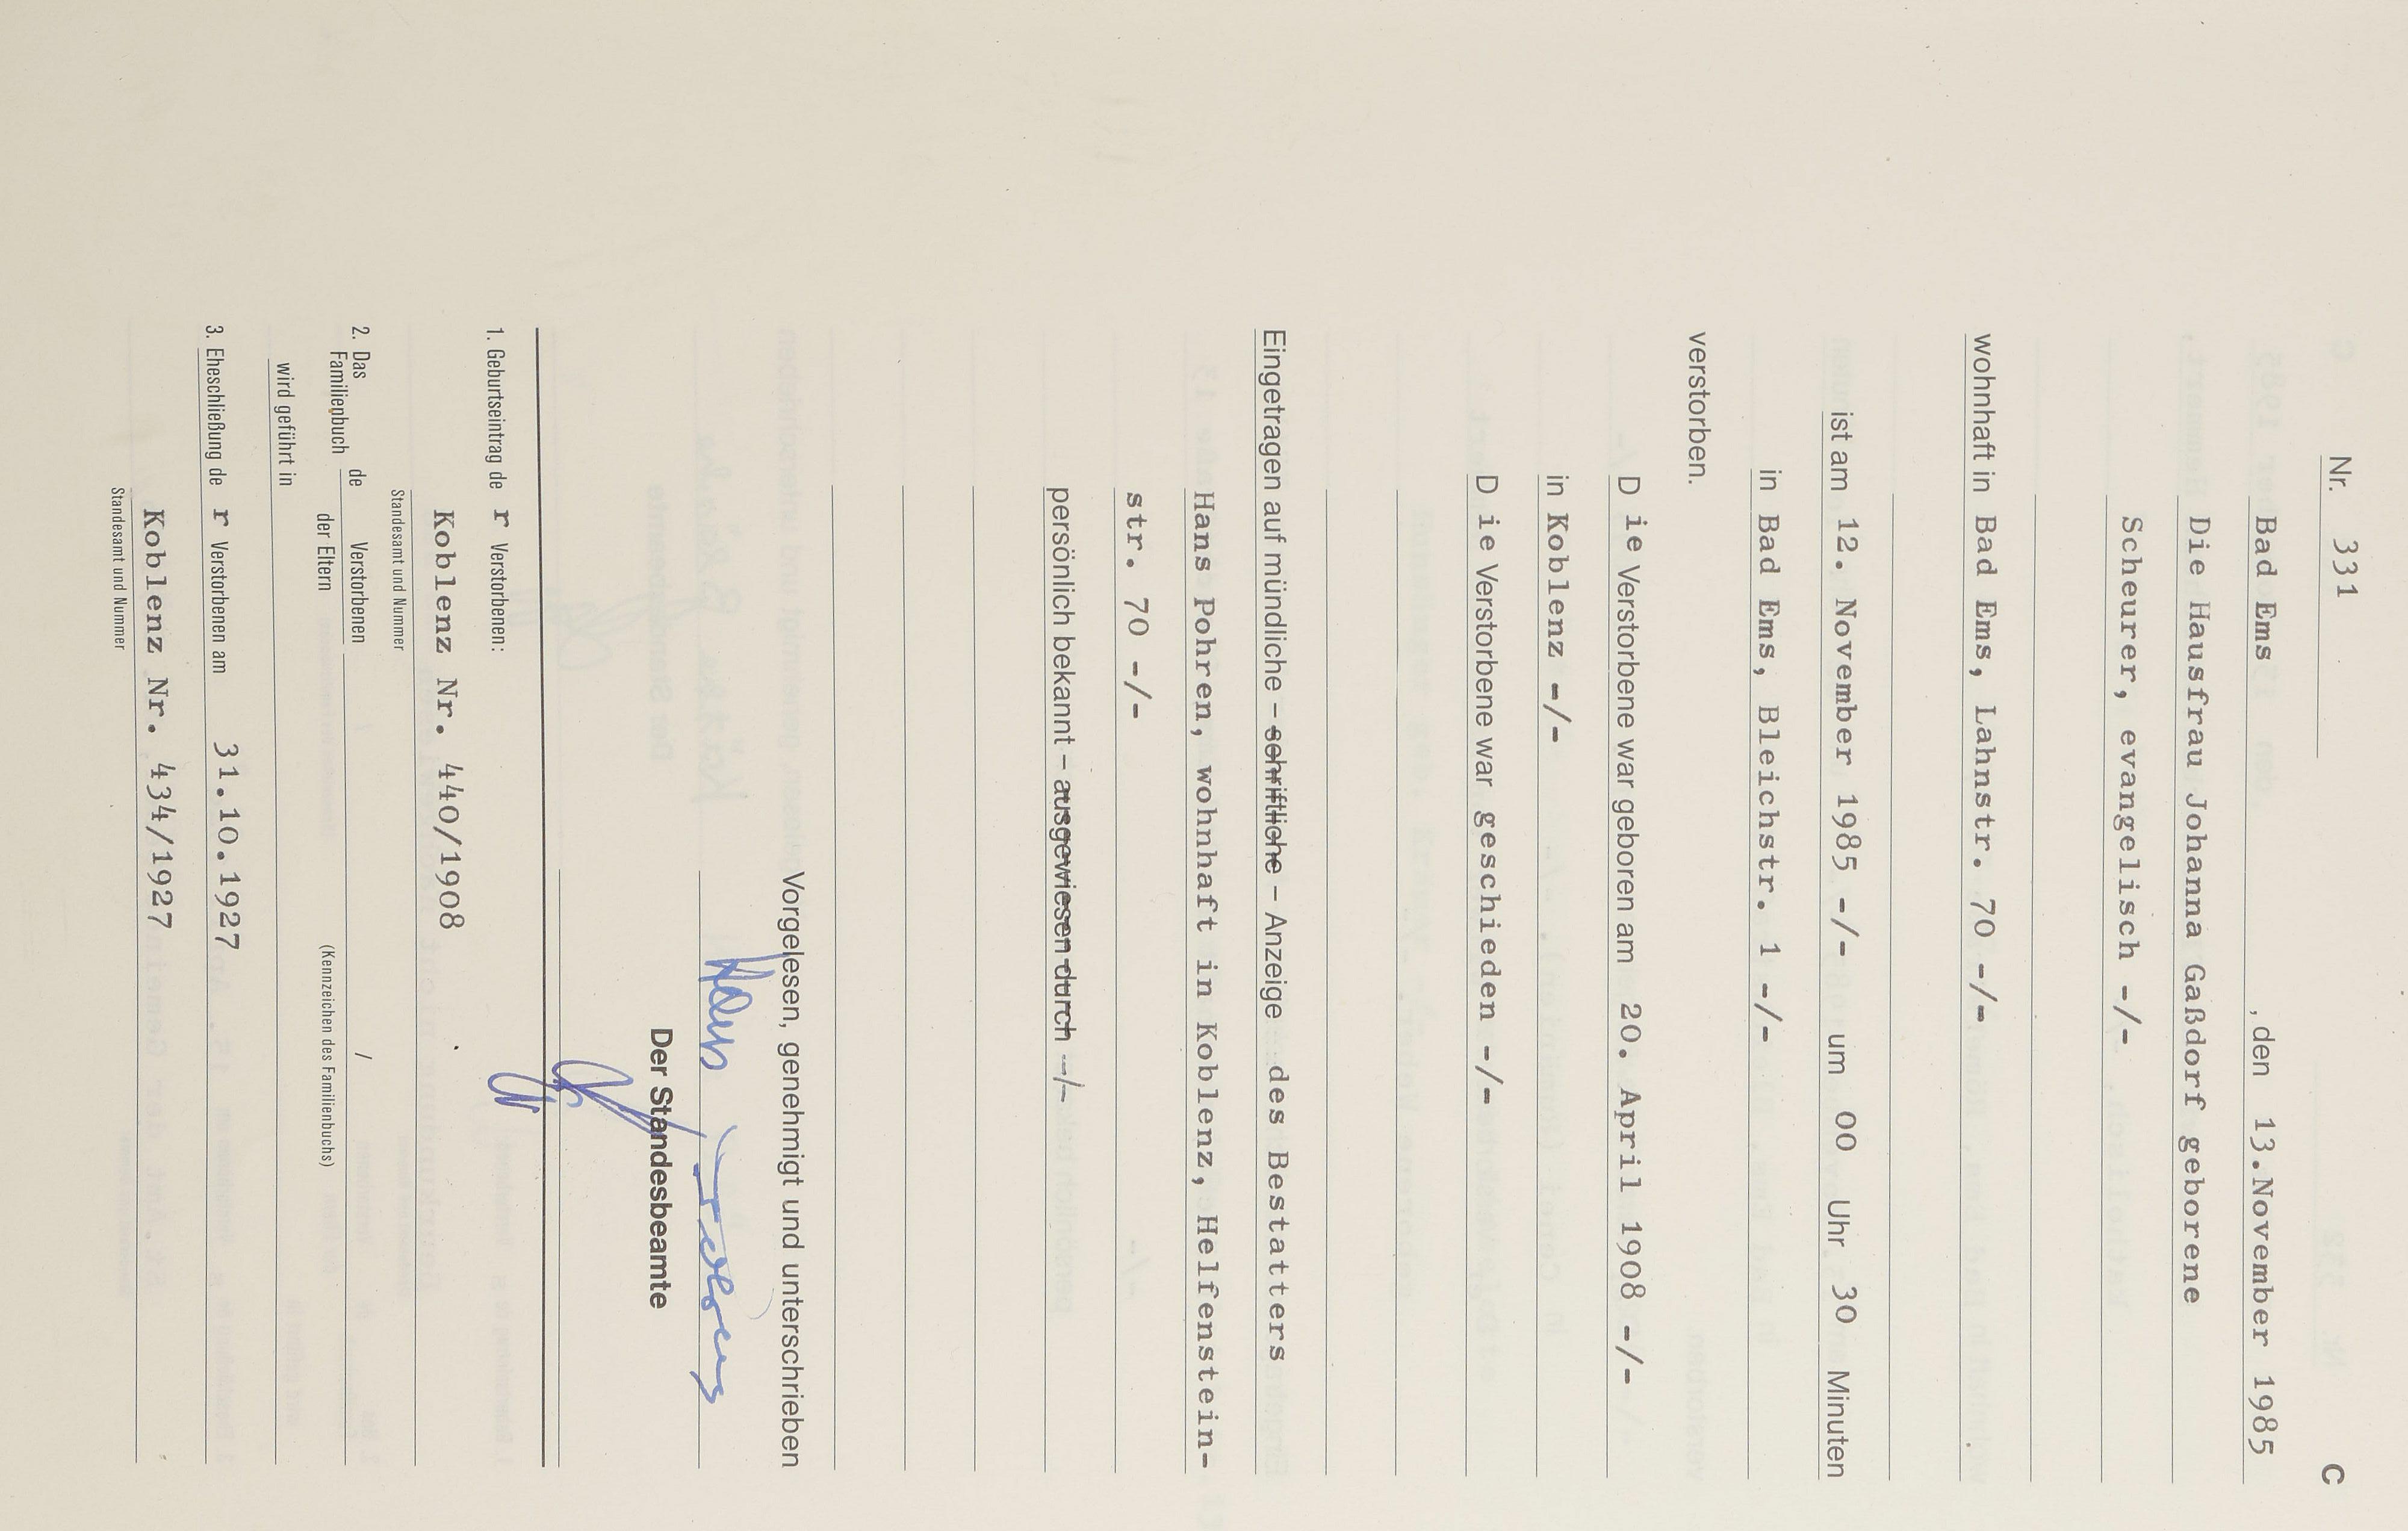 C
Nr. 331
Bad Ems, den 13.November 1985
Die Hausfrau Johanna Gaßdorf geborene
Scheurer, evangelisch -/-
wohnhaft in Bad Ems, Lahnstr. 70 -/-
ist am 12. November 1985 -/- um 00 Uhr 30 Minuten
in Bad Ems, Bleichstr. 1 -/-
verstorben.
D ie Verstorbene war geboren am 20. April 1908 -/-
in Koblenz -/-
D ie Verstorbene war geschieden -/-
Eingetragen auf mündliche – schriftliche – Anzeige des Bestatters
Hans Pohren, wohnhaft in Koblenz, Helfenstein-
str. 70 -/-
persönlich bekannt – ausgewiesen durch -/-
Vorgelesen, genehmigt und unterschrieben
Hans Pohren
Der Standesbeamte
1. Geburtseintrag de r Verstorbenen:
Koblenz Nr. 440/1908
Standesamt und Nummer
2. Das Familienbuch de Verstorbenen /
der Eltern (Kennzeichen des Familienbuchs)
wird geführt in
3. Eheschließung de r Verstorbenen am 31.10.1927
Koblenz Nr. 434/1927
Standesamt und Nummer